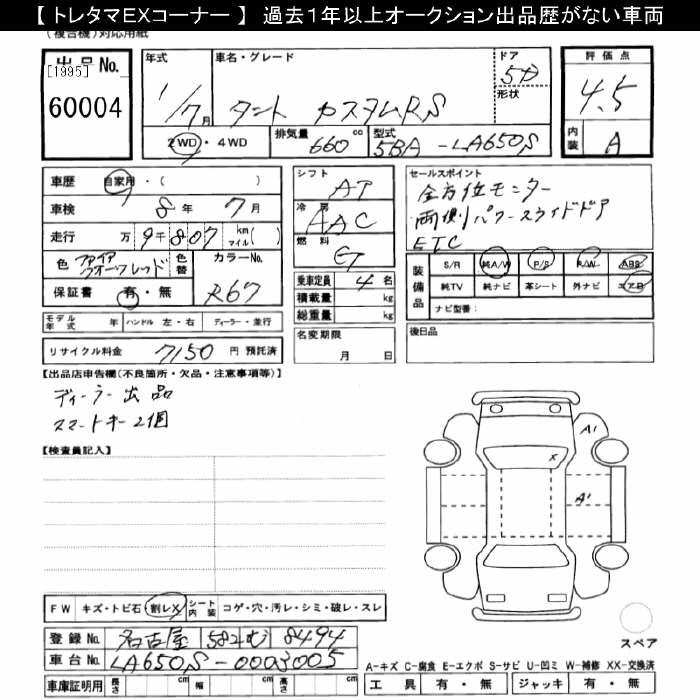 【 トレタマEXコーナー 】 過去１年以上オークション出品歴がない車両
(複合機)対応用紙
出品No.
[1995]
60004
年式
1/7月
車名・グレード
タント カスタムRS
ドア
5D
形状
2WD・4WD
排気量 660 cc
型式 5BA-LA650S
評価点
4.5
内装 A
車歴 自家用・( )
車検 8年 7月
走行 万 9千 807 km マイル( )
色 ファイアクオーツレッド
色替
カラーNo. R67
保証書 有・無
モデル年式 年 ハンドル 左・右 ディーラー・並行
リサイクル料金 7150 円 預託済
シフト AT
冷房 AAC
燃料 G
乗車定員 4名
積載量 kg
総重量 kg
名変期限
月 日
セールスポイント
全方位モニター
両側パワースライドドア
ETC
装備品
S/R 純A/W P/S P/W ABS
純TV 純ナビ 革シート 外ナビ エアB
ナビ型番：
後日品
【出品店申告欄(不良箇所・欠品・注意事項等)】
ディーラー出品
スマートキー2個
【検査員記入】
A1
X
A1
FW キズ・トビ石 割レX シート内装 コゲ・穴・汚レ・シミ・破レ・スレ
登録No. 名古屋 582 む 8494
車台No. LA650S-0003005
車庫証明用 長さ cm 幅 cm 高さ cm
スペア
A-キズ C-腐食 E-エクボ S-サビ U-凹ミ W-補修 XX-交換済
工具 有・無 ジャッキ 有・無